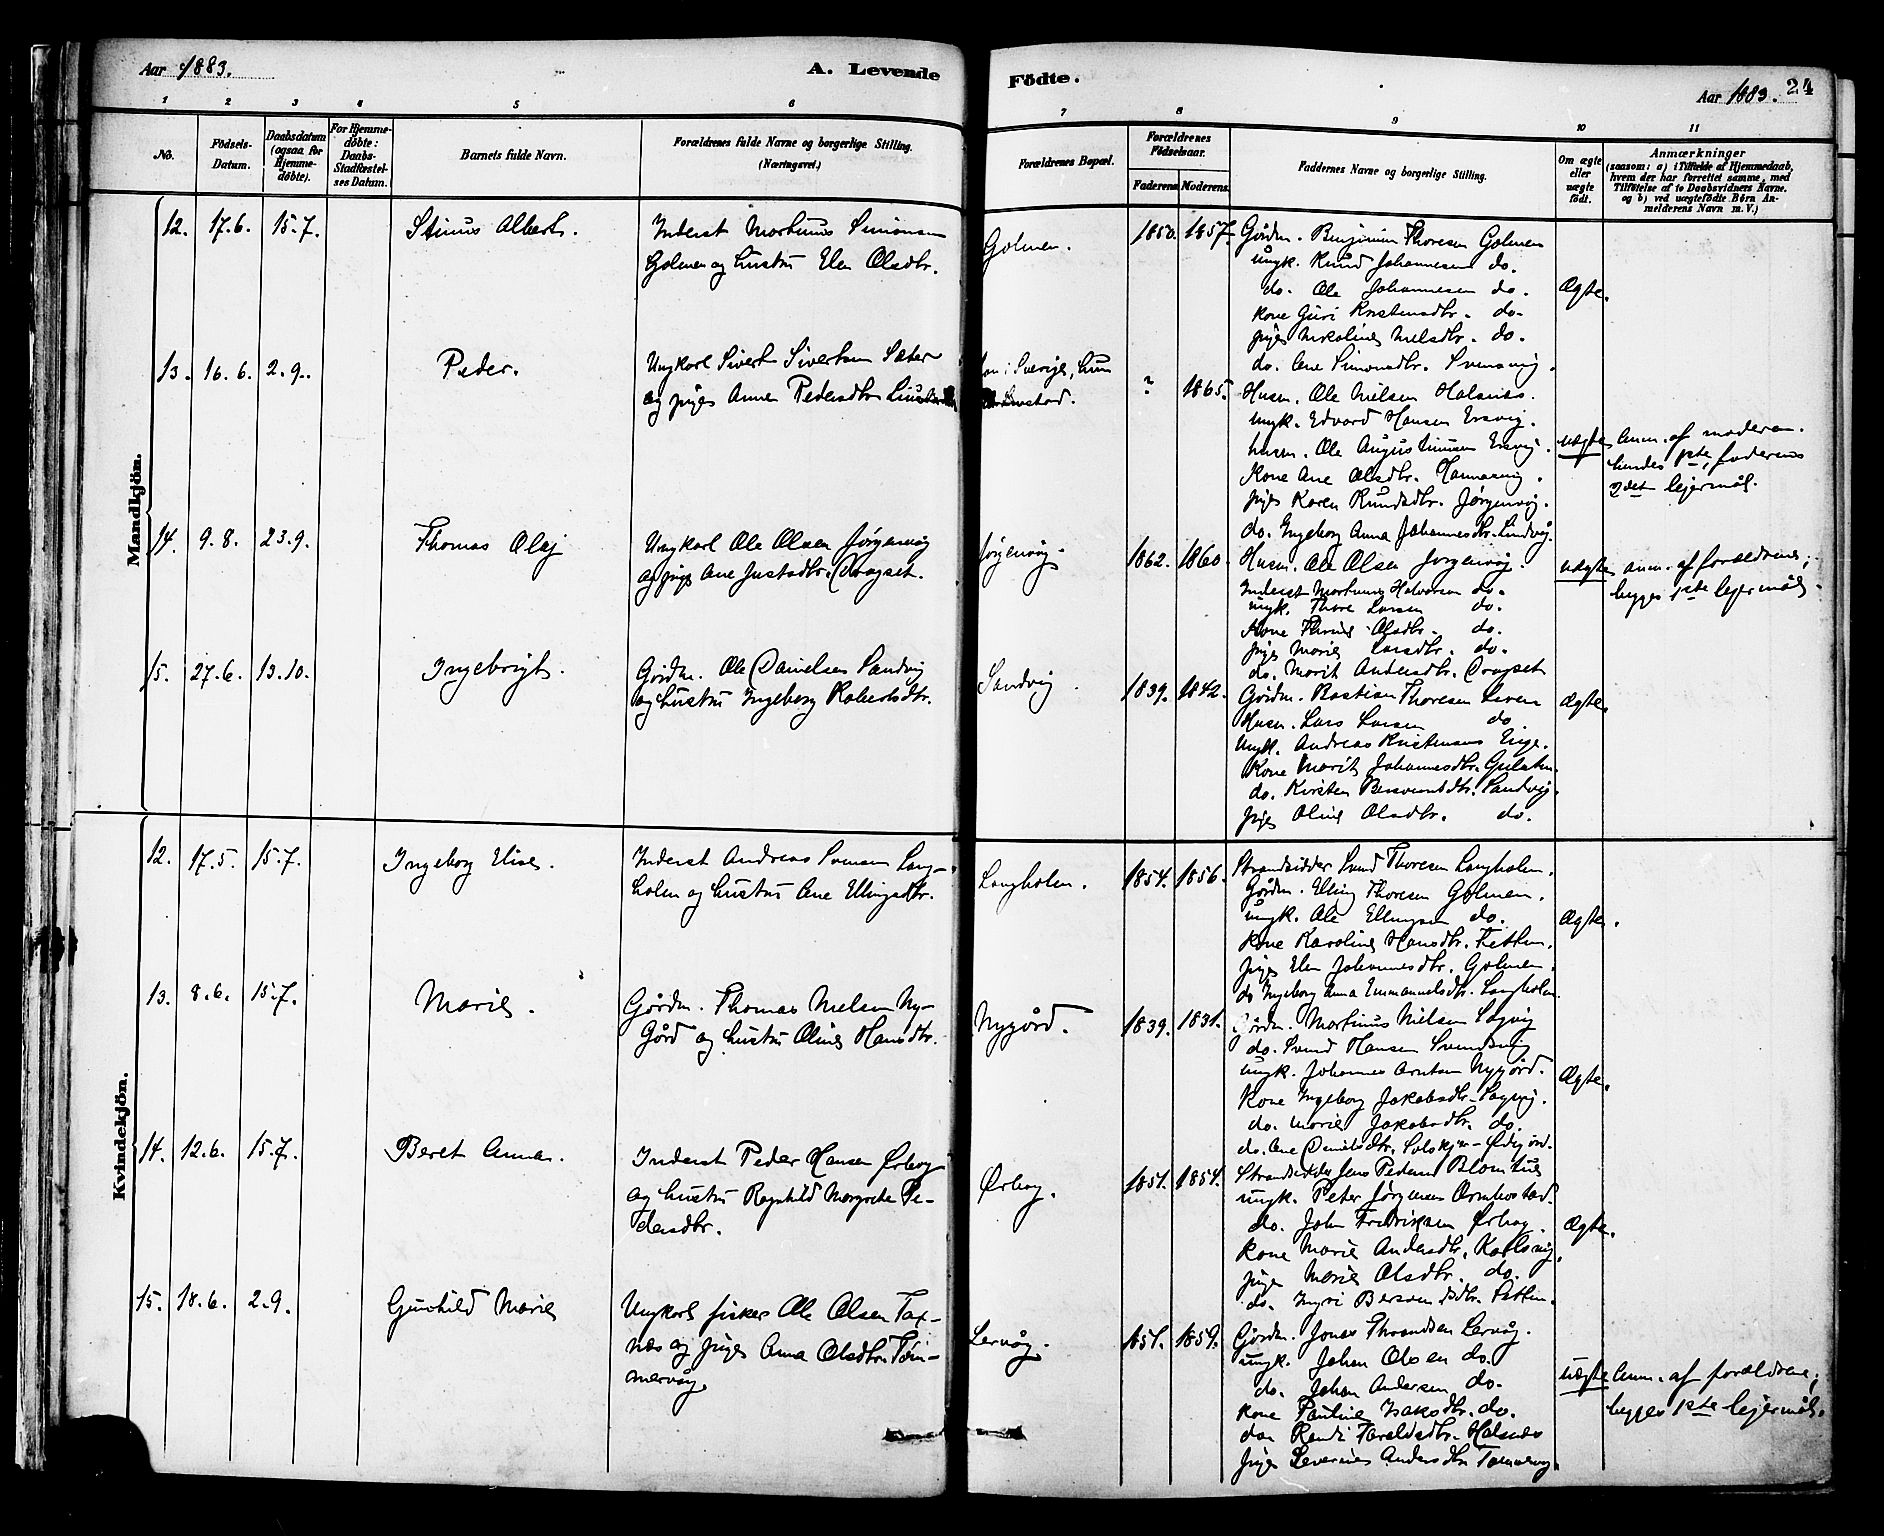 Aar 1883.
A. Levende
Födte.
Aar 1883.
24
1 2 3 4 5 6
7 8 9 10 11
No.
Födsels-Datum.
Daabsdatum (ogsaa for Hjemme-döbte).
For Hjemme-döbte: Daabs-Stadfæstel-ses Datum.
Barnets fulde Navn.
Forældrenes fulde Navne og borgerlige Stilling. (Næringsvei.)
Forældrenes Bopæl.
Forældrenes Födselsaar.
Faderens. Moderens.
Faddernes Navne og borgerlige Stilling.
Om ægte eller uægte födt.
Anmærkninger
(saasom: a) i Tilfælde af Hjemmedaab, hvem der har forrettet samme, med Tilföielse af to Daabsvidners Navne. og b) ved uægtefödte Börn An-melderens Navn m. V.)
Mandkjön.
12. 17.6. 15.7. Stinus Albert.
Inderst Martinus Simonsen
Golmen og hustru Elen Olsdtr.
Golmen. 1850. 1857.
Gårdm. Benjamin Thoresen Golmen
Ungk. Knud Johannesen do.
do. Ole Johannesen do.
Kone Guri Kristensdtr. do.
pige Nikoline Nielsdtr. do.
do. Ane Simonsdtr. Svensvig.
Ægte.
13. 16.6. 2.9. Peder.
Ungkarl Sivert Sivertsen Sæter
og pige Anne Pedersdtr
i Sverige, hun
? 1865.
Husm. Ole Nielsen Halsnes.
Ungk. Edvard Hansen Ersvig.
husm. Ole Augustinusen Ersvig.
Kone Ane Olsdtr.
pige Karen Knudsdtr. Jørgenvåg.
do. Ingeborg Anna Johannesdtr. Lindvåg.
uægte
Anm. af moderen.
hendes 1ste, faderens
2det lejermål.
14. 9.8. 23.9. Thomas Olaj
Ungkarl Ole Olsen Jørgenvåg
og pige Ane Justsdtr. Dragset.
Jørgenvåg. 1862. 1860.
Husm. Ole Olsen Jørgenvåg.
Inderst Martinus Halvorsen do.
ungk. Thore Larsen do.
Kone Olsdtr. do.
pige Marie Larsdtr. do.
do. Marit Andersdtr. Dragset
uægte
anm. af forældrene;
begges 1ste lejermål.
15. 27.6. 13.10. Ingebrigt.
Gårdm. Ole Danielsen Sandvig
og hustru Ingeborg Robertsdtr.
Sandvig. 1839. 1842.
Gårdm. Bastian Thoresen Leren
Husm. Lars Larsen do.
Ungk. Andreas Kristensen Enge.
Kone Marit Johannesdtr.
do. Kirsten Sandvig.
pige Oline Olsdtr. do.
Ægte.
Kvindekjön.
12. 17.5. 15.7. Ingeborg Elise.
Inderst Andreas Svensen Lang-
holen og hustru Ane Ellingsdtr.
Langholen. 1854. 1856.
Strandsidder Svend Thoresen Langholen.
Gårdm. Elling Thoresen Golmen.
ungk. Ole Ellingsen do.
Kone Karoline Hansdtr.
pige Elen Johannesdtr. Golmen.
do Ingeborg Anna Emmanuelsdtr. Langholen.
Ægte.
13. 8.6. 15.7. Marie.
Gårdm. Thomas Nielsen Ny-
gård og hustru Oline Hansdtr.
Nygård. 1839. 1831.
Gårdm. Martinus Nielsen Sagvig
do. Svend Hansen Svendsvig
ungk. Johannes Arntsen Nygård.
Kone Ingeborg Jakobsdtr. Sagvig.
do. Marie Jakobsdtr. do.
do. Ane Danielsdtr. Solskjer - Ødegård.
Ægte.
14. 12.6. 15.7. Beret Anna.
Inderst Peder Hansen Ørbog
og hustru Ragnhild Margrete Pe-
dersdtr.
Ørbog. 1851. 1854.
Strandsidder Jens Pedersen Blomhus
ungk. Peter Jørgensen
do. John Fredriksen Ørbog.
Kone Marie Andersdtr. Karlsvig.
pige Marie Olsdtr. do.
do. Ingri
Ægte.
15. 18.6. 2.9. Gunhild Marie
Ungkarl fisker Ole Olsen Tax-
næs og pige Anna Olsdtr. Tøm-
mervåg.
Lervåg. 1851. 1859.
Gårdm. Jonas Throndsen Lervåg.
ungk. Johan Olsen do.
do. Johan Andersen do.
Kone Pauline Isaksdtr. do.
do Randi Taraldsdtr. Halsnes
pige Severine Andersdtr. Tømmervåg
uægte
Anm. af forældrene;
begges 1ste lejermål.